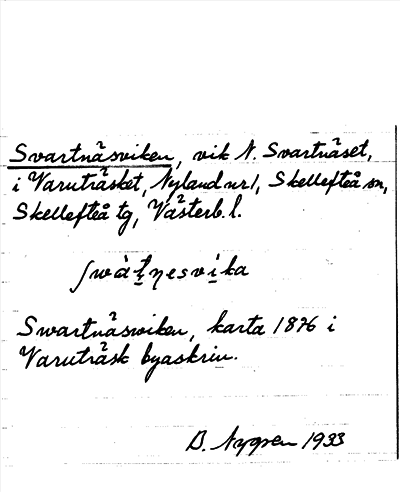 Svartnäsviken, vik N. Svartnäset,
i Varuträsket, Nyland nr 1, Skellefteå sn,
Skellefteå tg, Västerb. l.
Swartnäswiken, karta 1876 i
Varuträsk byaskrin.
B. Nygren 1933